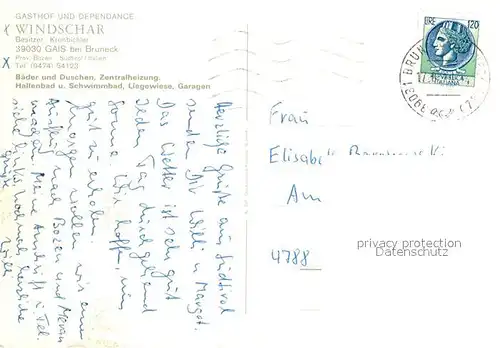 GASTHOF UND DEPENDANCE
WINDSCHAR
Besitzer Kronbichler
39030 GAIS bei Bruneck
Prov. Bozen Südtirol / Italien
Tel. (0474) 54123
Bäder und Duschen, Zentralheizung.
Hallenbad u. Schwimmbad, Liegewiese, Garagen
Herzliche Grüße aus Südtirol
senden Dir Willi u. Margot.
Das Wetter ist sehr gut
Jeden Tag durchgehend
Sonne. Wir hoffen, uns
gut zu erholen.
Morgen wollen wir einen
Ausflug nach Bozen und Meran
machen. Meine Anschrift u. Tel.
siehe links nochmals herzliche
Grüße
Willi
LIRE 120
ITALIANA
Frau
Elisabeth
Am
4788
privacy protection
Datenschutz